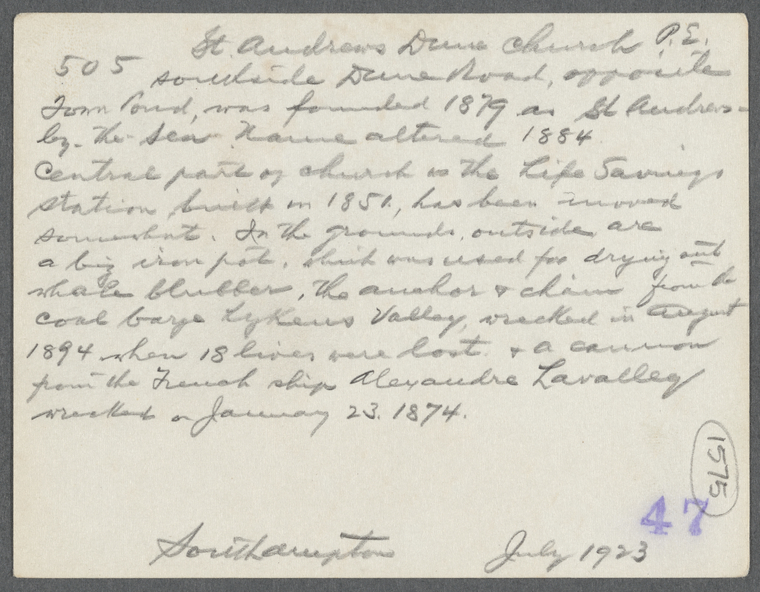 St. Andrews Dune Church P.E.
505 southside Dune Road, opposite
Town Pond, was founded 1879 as St Andrews-
by-the-Sea Name altered 1884
Central part of church is the Life Savings
Station built in 1851, has been moved
somewhat. In the grounds outside are
a big iron pot, which was used for drying out
whale blubber, the anchor & chain from the
coal barge Lykens Valley, wrecked in August
1894 when 18 lives were lost. & a cannon
from the French ship Alexandre Lavalley
wrecked on January 23. 1874.
1575
47
Southampton July 1923